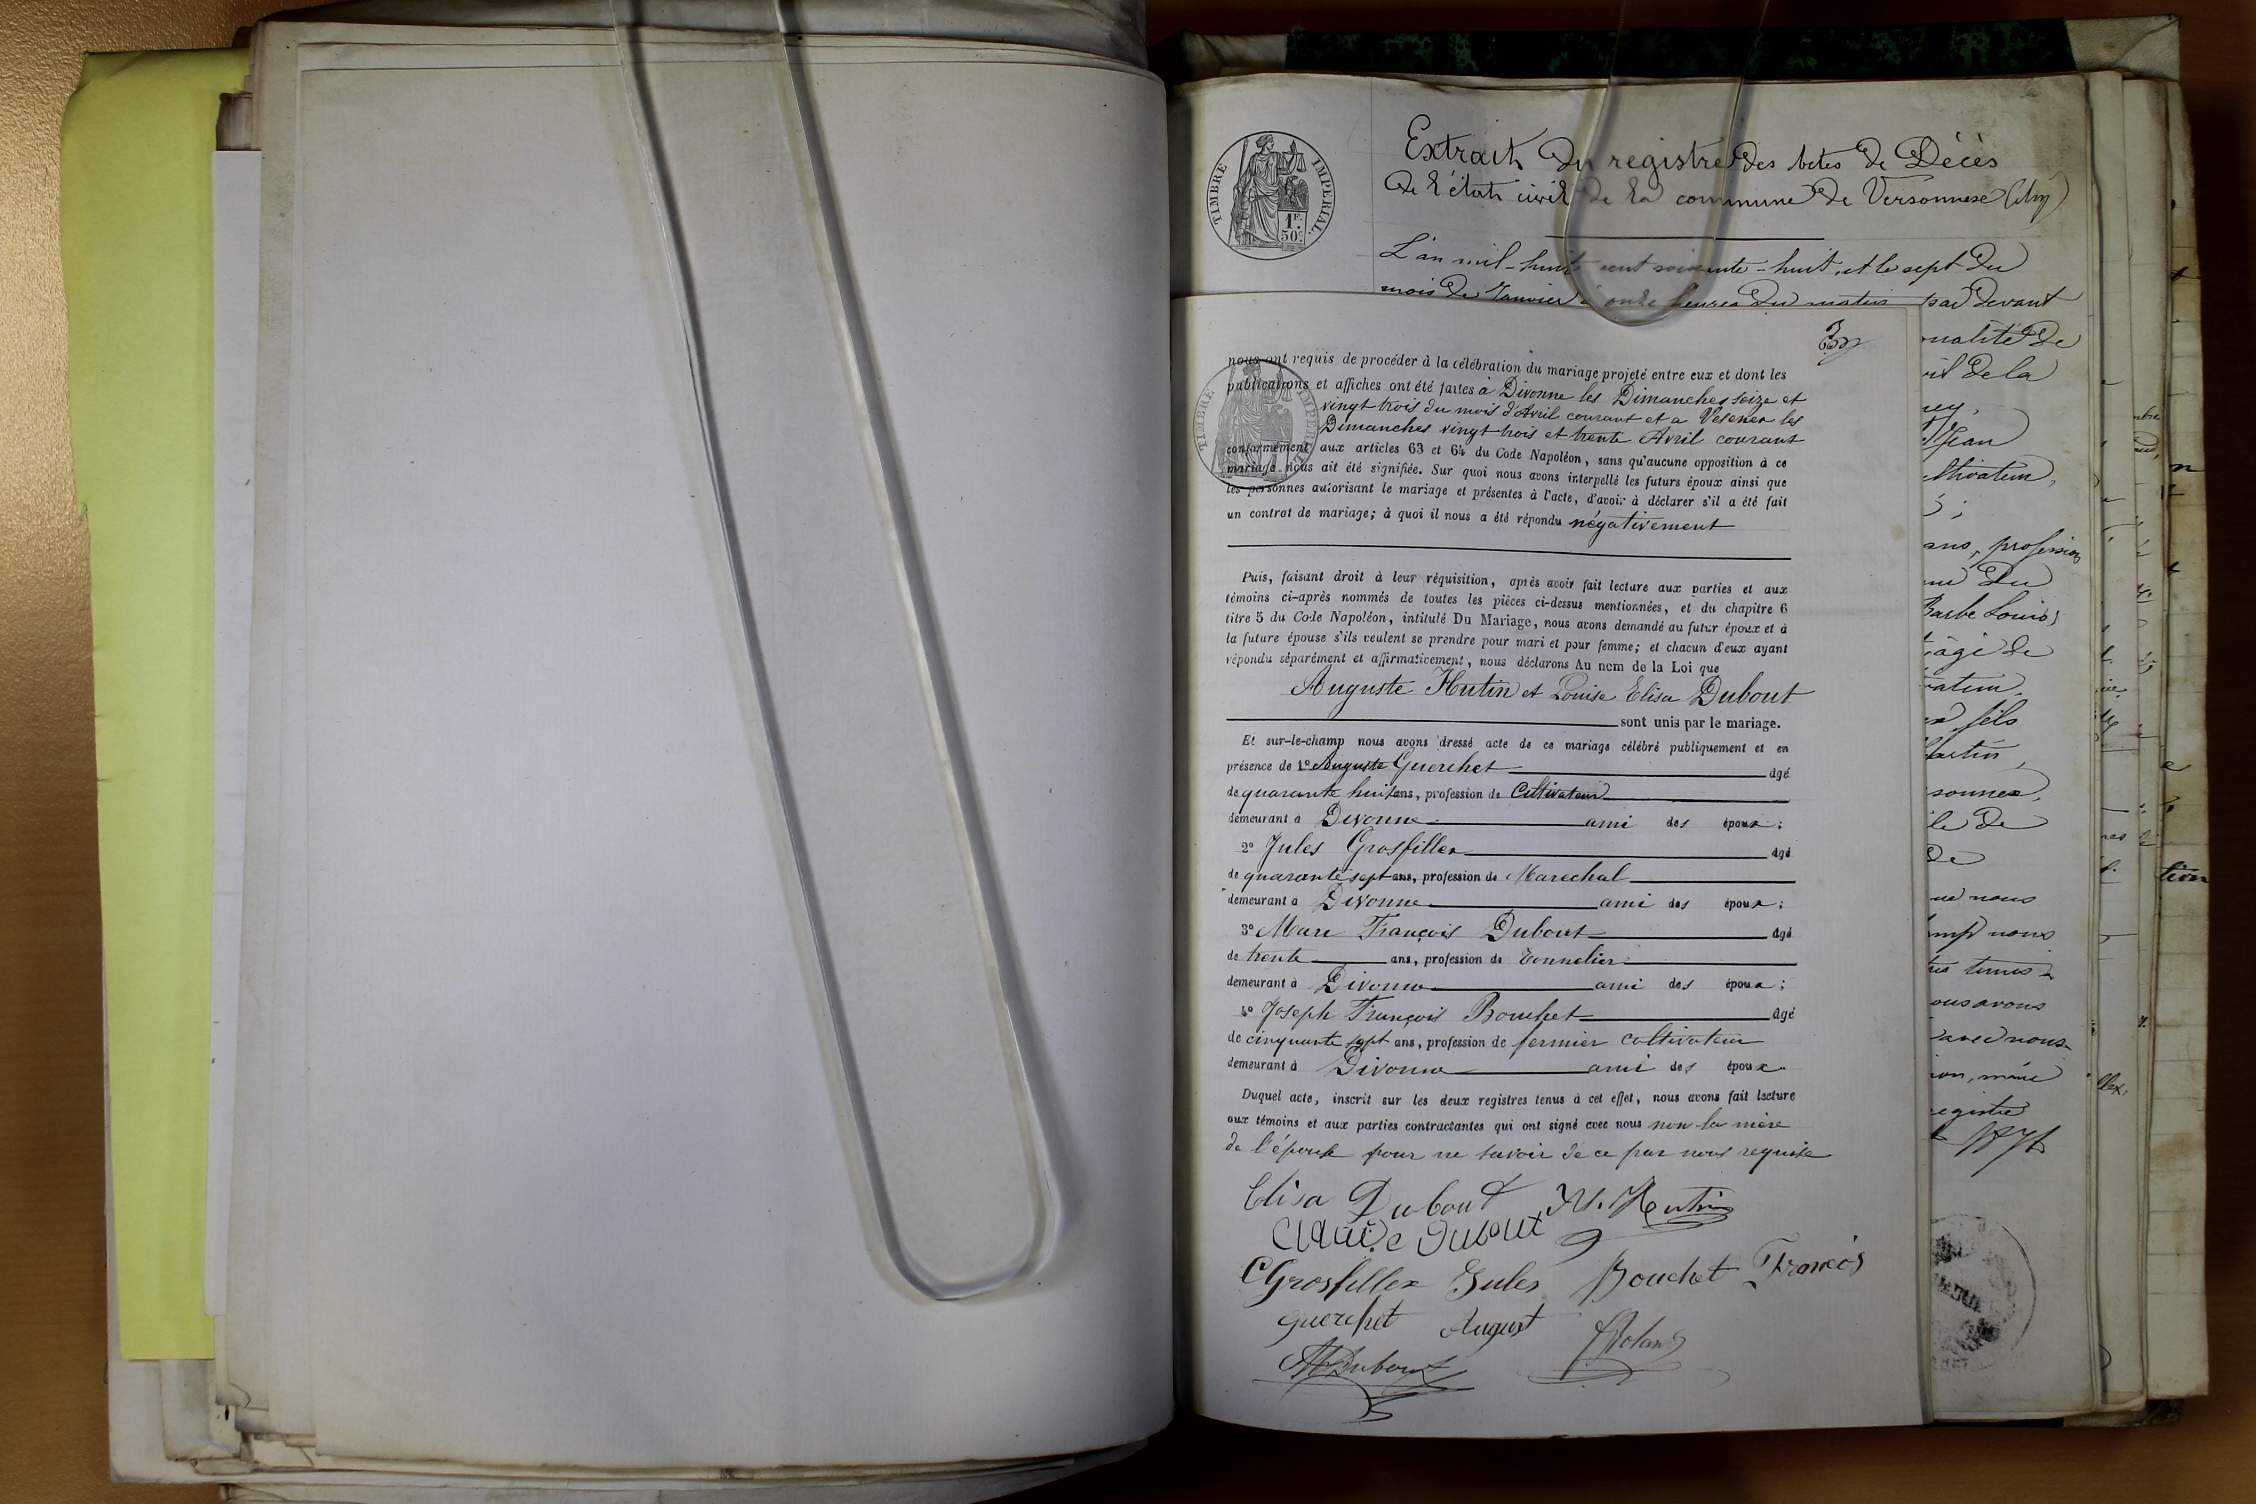 TIMBRE IMPERIAL
1F.
50c.
Extrait du registre des actes de Décès
de l'état civil de la commune de Versonnex (Ain)
L'an mil-huit cent soixante-huit, et le sept du
mois de Janvier à onze heures du matin par devant
3
TIMBRE IMPERIAL
nous ont requis de procéder à la célébration du mariage projeté entre eux et dont les
publications et affiches ont été faites à Divonne les Dimanches seize et
vingt trois du mois d'Avril courant et a Vesenex les
Dimanches vingt trois et trente Avril courant
conformément aux articles 63 et 64 du Code Napoléon, sans qu'aucune opposition à ce
mariage nous ait été signifiée. Sur quoi nous avons interpellé les futurs époux ainsi que
les personnes autorisant le mariage et présentes à l'acte, d'avoir à déclarer s'il a été fait
un contrat de mariage; à quoi il nous a été répondu négativement
Puis, faisant droit à leur réquisition, après avoir fait lecture aux parties et aux
témoins ci-après nommés de toutes les pièces ci-dessus mentionnées, et du chapitre 6
titre 5 du Code Napoléon, intitulé Du Mariage, nous avons demandé au futur époux et à
la future épouse s'ils veulent se prendre pour mari et pour femme; et chacun d'eux ayant
répondu séparément et affirmativement, nous déclarons Au nom de la Loi que
Auguste Hutin et Louise Elisa Dubout
sont unis par le mariage.
Et sur-le-champ nous avons dressé acte de ce mariage célébré publiquement et en
présence de 1° Auguste Guerchet âgé
de quarante huit ans, profession de Cultivateur
demeurant à Divonne ami des époux;
2° Jules Grosfillex âgé
de quarante sept ans, profession de Marechal
demeurant à Divonne ami des époux;
3° Marc François Dubout âgé
de trente ans, profession de Tonnelier
demeurant à Divonne ami des époux;
4° Joseph François Bouchet âgé
de cinquante sept ans, profession de fermier cultivateur
demeurant à Divonne ami des époux
Duquel acte, inscrit sur les deux registres tenus à cet effet, nous avons fait lecture
aux témoins et aux parties contractantes qui ont signé avec nous non la mère
de l'épouse pour ne savoir de ce par nous requise
Elisa Dubout A. Hutin
Claude Dubout
Grosfillex Jules Bouchet Francois
Guerchet August
Dubout
nalité de
vil de la
Jean
ultivateur,
ans, profession
du
Barbe Louis
âgé de
vateur,
fils
Martin,
sonnex,
de
de
nous
nous
témoins
nous avons
avec nous
maire
registre
tion
llex,